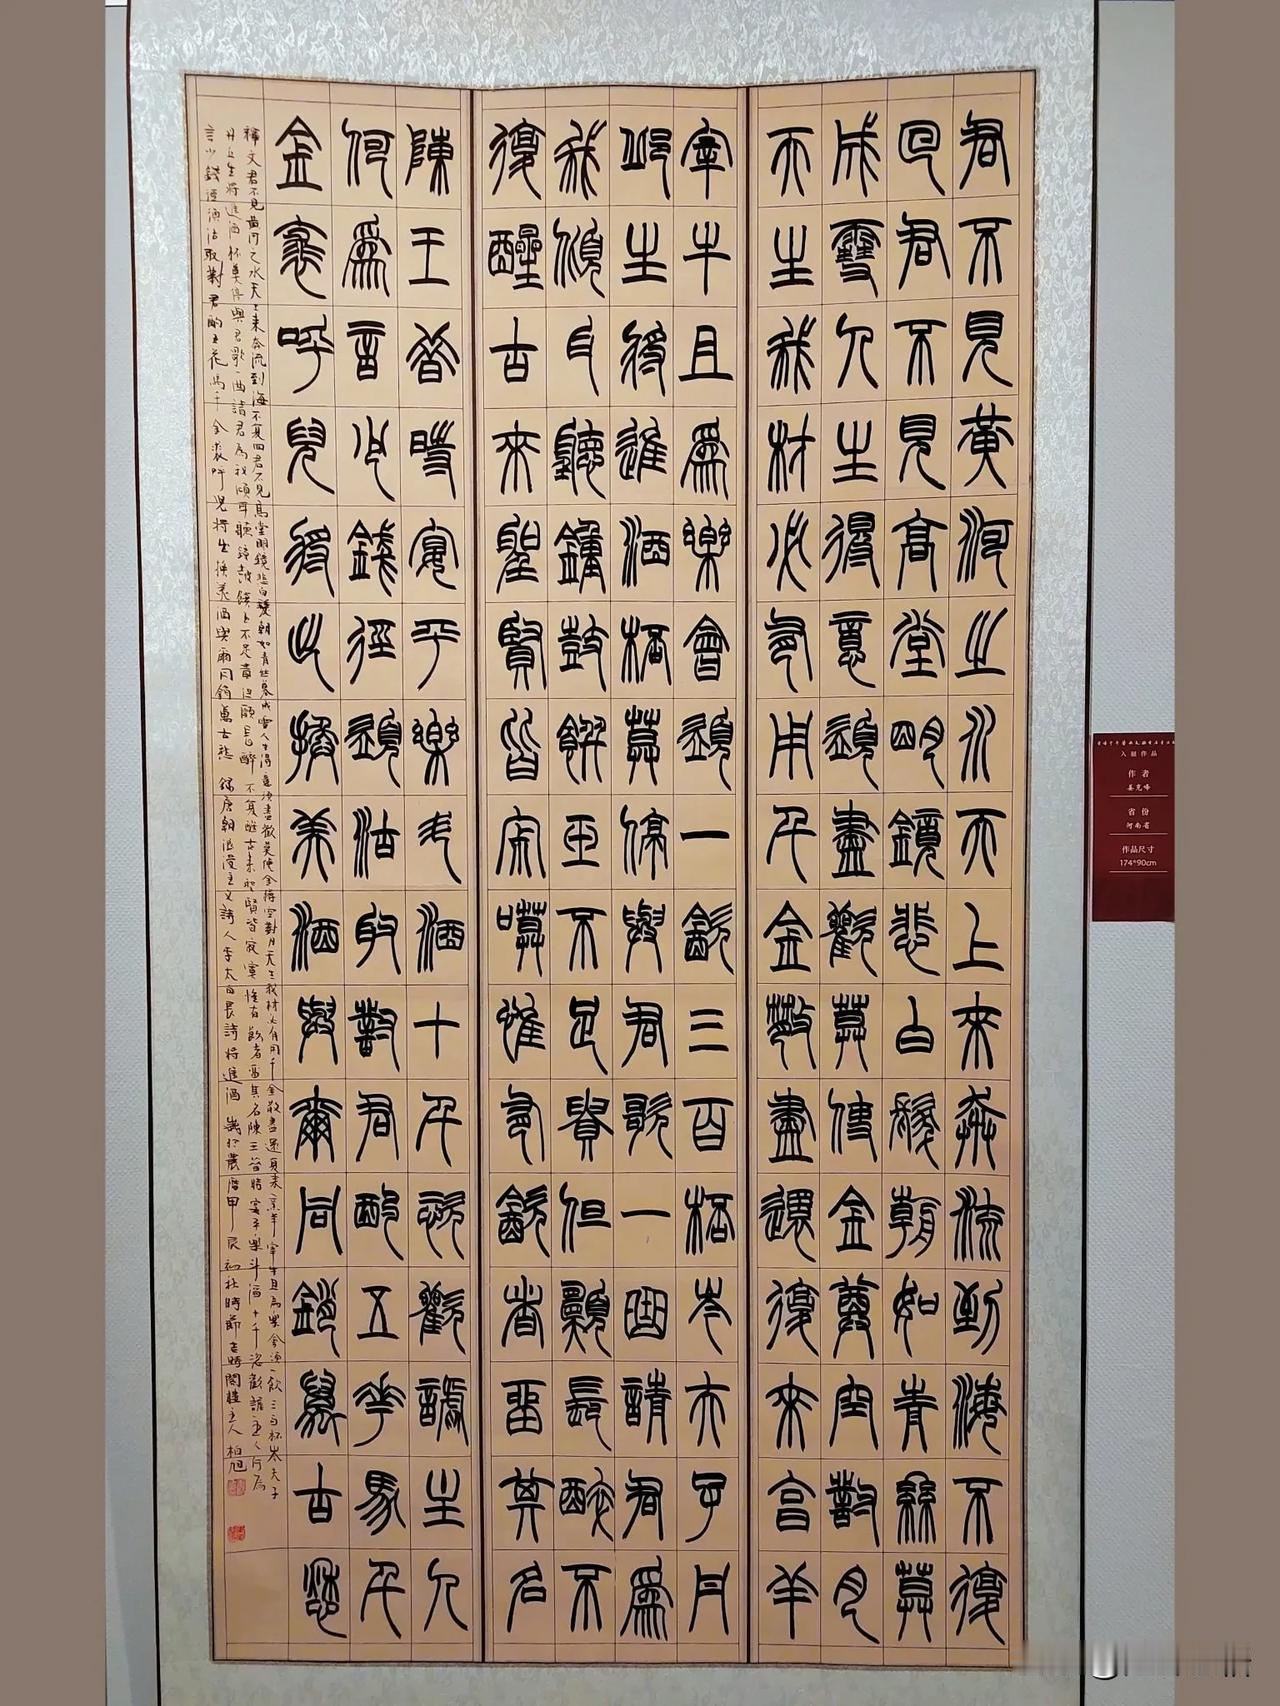 君不見黃河之水天上來奔流到海不復
回君不見高堂明鏡悲白髮朝如青絲莫
成雪人生得意須盡歡莫使金尊空對月
天生我材必有用千金散盡還復來亯羊
宰牛且爲樂會須一飲三百桮岑夫子丹
丘生將進酒桮莫停與君歌一曲請君爲
我傾耳聽鐘鼓饌玉不足貴但願長醉不
復醒古來聖賢皆寂寞惟有飲者留其名
陳王昔時宴平樂斗酒十千恣歡謔主人
何爲言少錢徑須沽取對君酌五花馬千
金裘呼兒將出換美酒與爾同銷萬古愁
釋文君不見黄河之水天上来奔流到海不复回君不见高堂明鏡悲白髮朝如青丝暮成雪人生得意須盡歡莫使金樽空對月天生我材必有用千金散盡還复来烹羊宰牛且為樂會須一飲三百杯岑夫子
丹丘生將進酒杯莫停與君歌一曲請君為我傾耳聽鐘鼓饌玉不足貴但願長醉不复醒古来聖賢皆寂寞惟有飲者留其名陳王昔時宴平樂斗酒十千恣歡謔主人何為
言少錢徑須沽取對君酌五花馬千金裘呼児將出換美酒與爾同銷萬古愁 錄唐朝浪漫主义詩人李太白長詩將進酒 歲於農曆甲辰初秋時節 閣樓主人柏旭
入展作品
作者
姜克峰
省份
河南省
作品尺寸
174*90cm